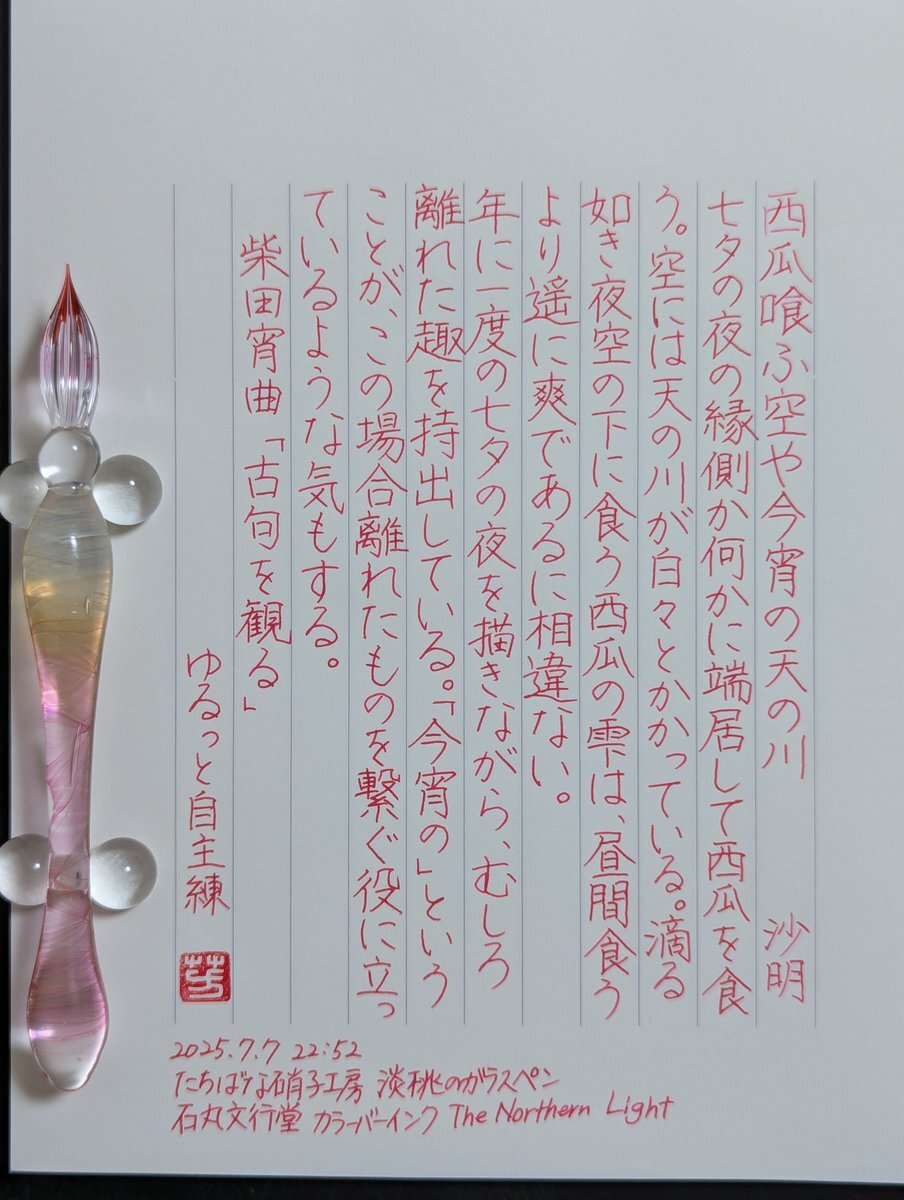 西瓜喰ふ空や今宵の天の川　沙明
七夕の夜の縁側か何かに端居して西瓜を食
う。空には天の川が白々とかかっている。滴る
如き夜空の下に食う西瓜の雫は、昼間食う
より遥に爽であるに相違ない。
年に一度の七夕の夜を描きながら、むしろ
離れた趣を持出している。「今宵の」という
ことが、この場合離れたものを繋ぐ役に立っ
ているような気もする。
柴田宵曲「古句を観る」
ゆるっと自主練
2025.7.7 22:52
たちばな硝子工房 淡桃のガラスペン
石丸文行堂 カラーバーインク The Northern Light